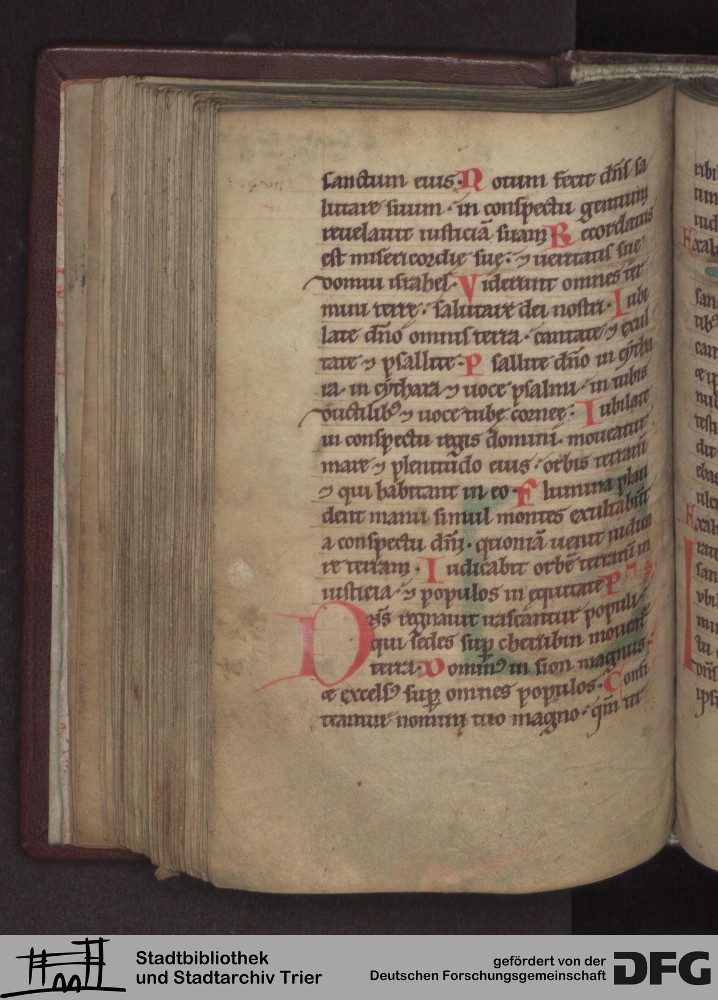 sanctum eius. Notum fecit dn̄s sa
lutare suum. in conspectu gentium
reuelauit iusticiā suam Recordatus
est misericordie sue. ⁊ ueritatis sue
domui israhel. Viderunt omnes ter
mini terre. salutare dei nostri. Iubi
late dn̄o omnis terra. cantate ⁊ exul
tate ⁊ psallite. Psallite dn̄o in cytha
ra. in cythara ⁊ uoce psalmi. in tubis
ductilib; ⁊ uoce tube cornee. Iubilate
in conspectu regis domini. moueatur
mare ⁊ plenitudo eius. orbis terrarū
⁊ qui habitant in eo. Flumina plau
dent manu simul montes exultabūt
a conspectu dn̄i. quoniā uenit iudica
re terram. Iudicabit orbē terrarū in
iusticia. ⁊ populos in equitate. P
Dn̄s regnauit irascantur populi.
qui sedes sup cherubin moueat
terra. Domin; in sion magnus
et excels; sup omnes populos. Confi
teantur nomini tuo magno. qm̄ te
Stadtbibliothek
und Stadtarchiv Trier
gefördert von der
Deutschen Forschungsgemeinschaft
DFG